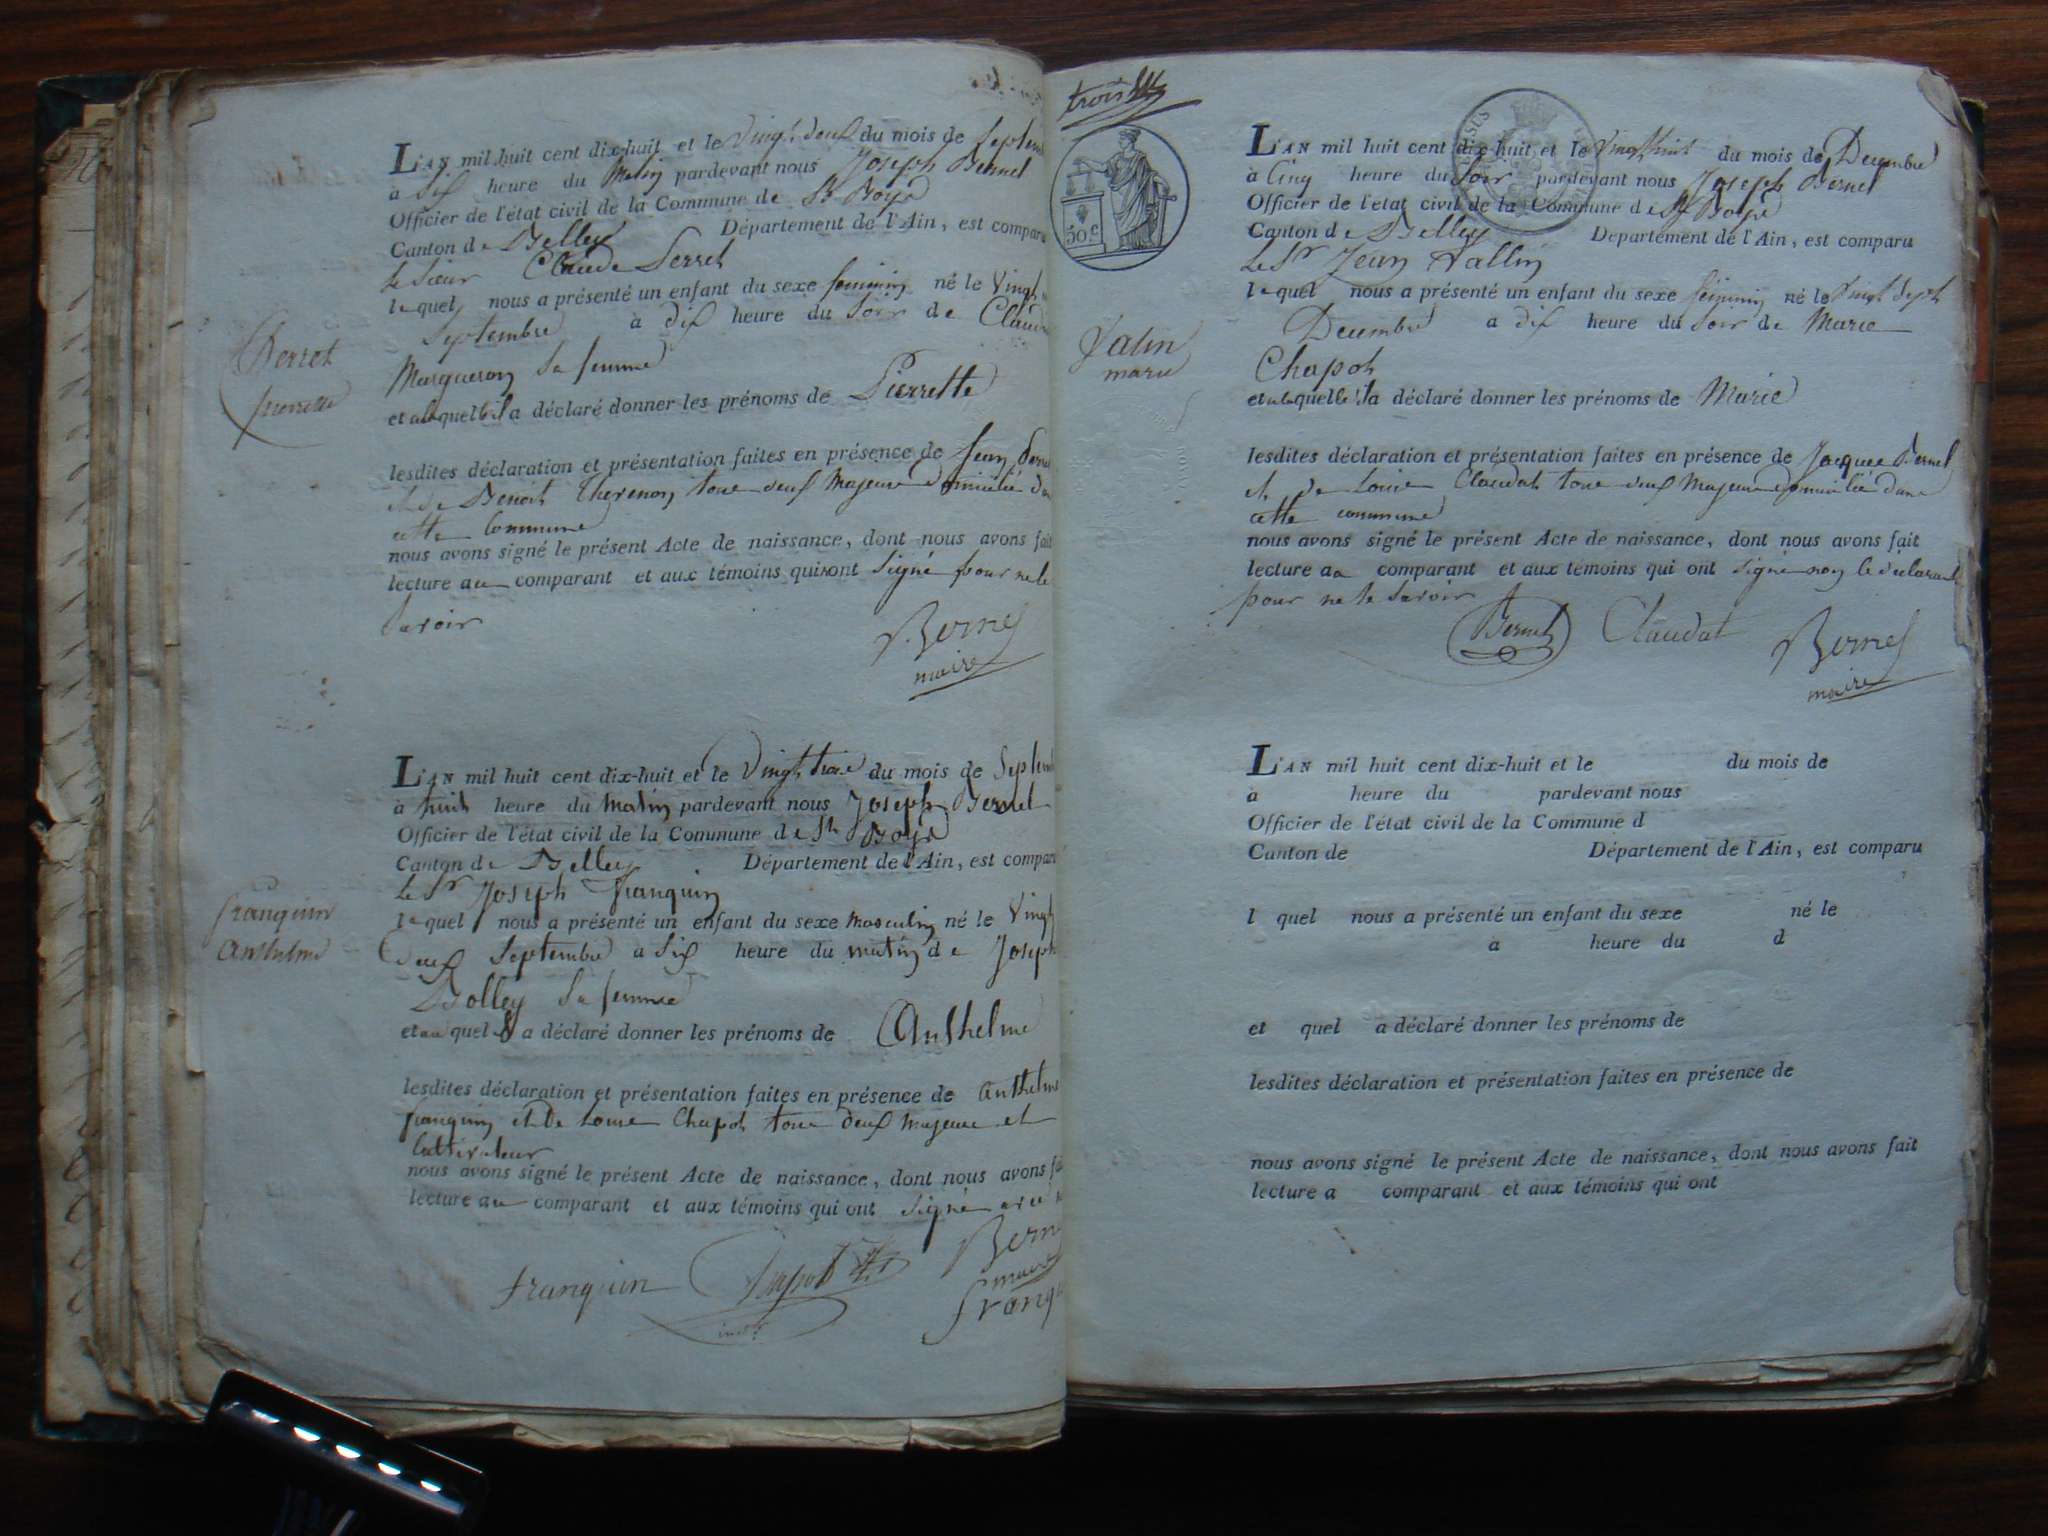 L'AN mil huit cent dix-huit et le vingt deux du mois de Septem
à dix heure du Matin pardevant nous Joseph Bernel
Officier de l'état civil de la Commune de St Boys
Canton de Belley Département de l'Ain, est comparu
le Sieur Claude Perret
lequel nous a présenté un enfant du sexe feminin né le Vingt
Septembre à dix heure du Soir de Claud
Margueron Sa femme
et quel a déclaré donner les prénoms de Pierrette
lesdites déclaration et présentation faites en présence de Jean
et de Benoit Thevenon tous deux Majeurs domiciliés dan
cette Commune
nous avons signé le présent Acte de naissance, dont nous avons fait
lecture au comparant et aux témoins qui ont Signé pour ne le
Savoir
Bernel
maire
Perret
pierrette
L'AN mil huit cent dix-huit et le Vingt trois du mois de Septemb
à huit heure du Matin pardevant nous Joseph Bernel
Officier de l'état civil de la Commune de St Boys
Canton de Belley Département de l'Ain, est comparu
le Sr Joseph franquin
lequel nous a présenté un enfant du sexe masculin né le Vingt
deux Septembre à Six heure du matin de Joseph
Bolley Sa femme
et au quel il a déclaré donner les prénoms de Anthelme
lesdites déclaration et présentation faites en présence de Anthelme
franquin et De Louis Chapot tous deux Majeurs et
Cultivateur
nous avons signé le présent Acte de naissance, dont nous avons fai
lecture au comparant et aux témoins qui ont Signé avec
franquin
Anthelme
franquin Chapot Bern
maire
franqu
trois
50 C.
L'AN mil huit cent dix-huit et le Vingt huit du mois de Decembre
à Cinq heure du Soir pardevant nous Joseph Bernel
Officier de l'état civil de la Commune de St Boys
Canton de Belley Département de l'Ain, est comparu
Le Sr Jean Vallin
lequel nous a présenté un enfant du sexe féminin né le Vingt Sept
Decembre à dix heure du Soir de Marie
Chapot
et a laquelle il a déclaré donner les prénoms de Marie
Valin
marie
lesdites déclaration et présentation faites en présence de Jacques Bernel
et de Louis Claudat tous deux Majeurs domiciliés dans
cette commune
nous avons signé le présent Acte de naissance, dont nous avons fait
lecture au comparant et aux témoins qui ont signé non le déclarant
pour ne le savoir
Bernel Claudat Bernel
maire
L'AN mil huit cent dix-huit et le du mois de
à heure du pardevant nous
Officier de l'état civil de la Commune d
Canton de Département de l'Ain, est comparu
l quel nous a présenté un enfant du sexe né le
à heure du d
et quel a déclaré donner les prénoms de
lesdites déclaration et présentation faites en présence de
nous avons signé le présent Acte de naissance, dont nous avons fait
lecture a comparant et aux témoins qui ont